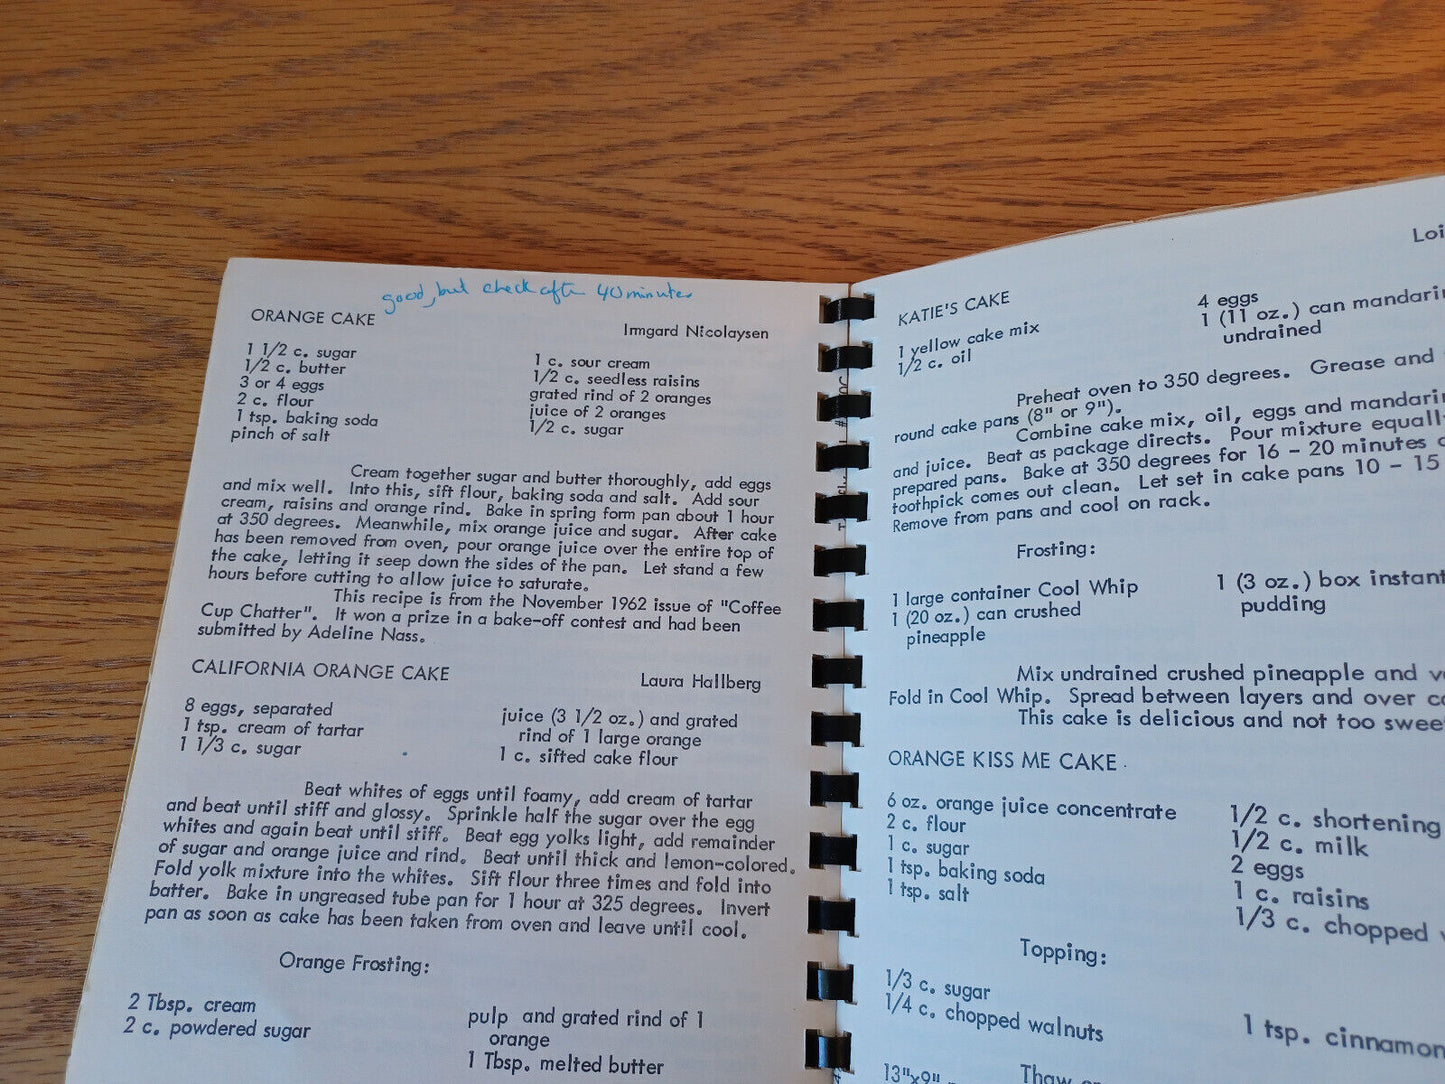 good, but check after 40 minutes
ORANGE CAKE
Irmgard Nicolaysen
1 1/2 c. sugar
1/2 c. butter
3 or 4 eggs
2 c. flour
1 tsp. baking soda
pinch of salt
1 c. sour cream
1/2 c. seedless raisins
grated rind of 2 oranges
juice of 2 oranges
1/2 c. sugar
Cream together sugar and butter thoroughly, add eggs
and mix well. Into this, sift flour, baking soda and salt. Add sour
cream, raisins and orange rind. Bake in spring form pan about 1 hour
at 350 degrees. Meanwhile, mix orange juice and sugar. After cake
has been removed from oven, pour orange juice over the entire top of
the cake, letting it seep down the sides of the pan. Let stand a few
hours before cutting to allow juice to saturate.
This recipe is from the November 1962 issue of "Coffee
Cup Chatter". It won a prize in a bake-off contest and had been
submitted by Adeline Nass.
CALIFORNIA ORANGE CAKE
Laura Hallberg
8 eggs, separated
1 tsp. cream of tartar
1 1/3 c. sugar
juice (3 1/2 oz.) and grated
rind of 1 large orange
1 c. sifted cake flour
Beat whites of eggs until foamy, add cream of tartar
and beat until stiff and glossy. Sprinkle half the sugar over the egg
whites and again beat until stiff. Beat egg yolks light, add remainder
of sugar and orange juice and rind. Beat until thick and lemon-colored.
Fold yolk mixture into the whites. Sift flour three times and fold into
batter. Bake in ungreased tube pan for 1 hour at 325 degrees. Invert
pan as soon as cake has been taken from oven and leave until cool.
Orange Frosting:
2 Tbsp. cream
2 c. powdered sugar
pulp and grated rind of 1
orange
1 Tbsp. melted butter
Loi
KATIE'S CAKE
1 yellow cake mix
1/2 c. oil
4 eggs
1 (11 oz.) can mandarin
undrained
Preheat oven to 350 degrees. Grease and
round cake pans (8" or 9").
Combine cake mix, oil, eggs and mandarin
and juice. Beat as package directs. Pour mixture equally
prepared pans. Bake at 350 degrees for 16 - 20 minutes
toothpick comes out clean. Let set in cake pans 10 - 15
Remove from pans and cool on rack.
Frosting:
1 large container Cool Whip
1 (20 oz.) can crushed
pineapple
1 (3 oz.) box instant
pudding
Mix undrained crushed pineapple and
Fold in Cool Whip. Spread between layers and over
This cake is delicious and not too sweet
ORANGE KISS ME CAKE
6 oz. orange juice concentrate
2 c. flour
1 c. sugar
1 tsp. baking soda
1 tsp. salt
1/2 c. shortening
1/2 c. milk
2 eggs
1 c. raisins
1/3 c. chopped
Topping:
1/3 c. sugar
1/4 c. chopped walnuts
1 tsp. cinnamon
Thaw
13"x9"